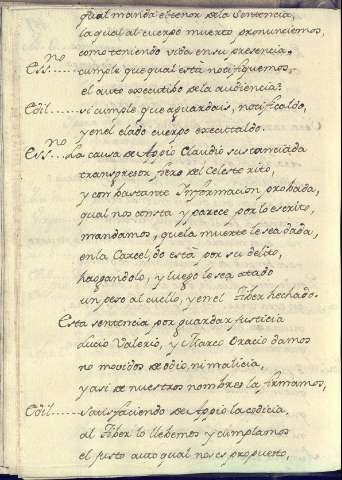 qual manda el tenor de la Sentencia,
la qual al cuerpo muerto pronunciemos,
como teniendo vida en su presencia.
Ess.no ..... cumple que qual está notifiquemos,
el auto executibo de la audiencia?
Edil ..... si cumple que aguardais, notificaldo,
y en el elado cuerpo executtaldo.
Ess.no ... La causa de Appio Claudio sustanciada
transgresor fiero del Celeste rito,
y con bastante Informacion probada,
qual nos consta y parece por lo escrito,
mandamos, que la muerte le sea dada,
en la Carcel, do está por su delito,
haogandolo, y luego le sea atado
un peso al cuello, y en el Tiber hechado.
Esta sentencia por guardar justicia
Lucio Valerio, y Marco Oracio damos
no movidos de odio, ni malicia,
y asi de nuestros nombres la firmamos,
Edil ..... satisfaciendo de Appio la codicia,
al Tiber lo llebemos y cumplamos
el justo auto qual nos es propuesto,